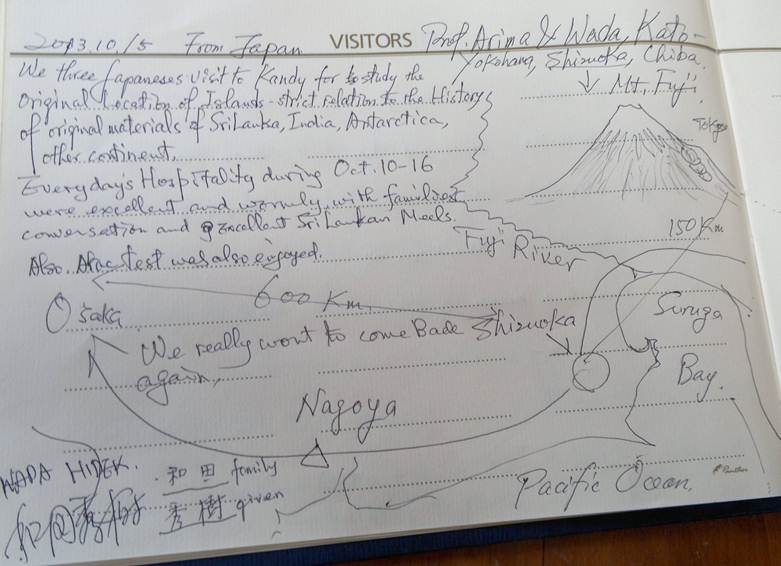 2013.10.15 From Japan VISITORS Prof. Arima & Wada, Kato-
Yokohama, Shizuoka, Chiba.
We three Japaneses visit to Kandy for to study the
Original Location of Islands - strict relation to the History
of original materials of SriLanka, India, Antarctica,
other continent.
Mt. Fuji
Tokyo
Everyday's Hospitality during Oct. 10-16
were excellent and warmly with families
conversation and excellent Sri Lankan Meels.
Also. test was also enjoyed.
Fuji River
150 Km
600 Km
Ōsaka
Shizuoka
Suruga
Bay.
We really want to come Back
again,
Nagoya
WADA HIDEK. 和田 family
和田秀樹 秀樹 given
Pacific Ocean.